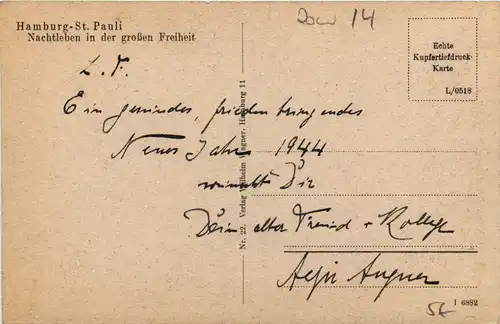 Hamburg-St. Pauli
Nachtleben in der großen Freiheit
14
Echte
Kupfertiefdruck-
Karte
L/0518
L. F.
Ein gesundes, friedenbringendes
Neues Jahr 1944
wünscht Dir
Dein alter Freund + Kollege
Nr. 22. Verlag Wilhelm Wagner, Hamburg 11
I 6882
5€